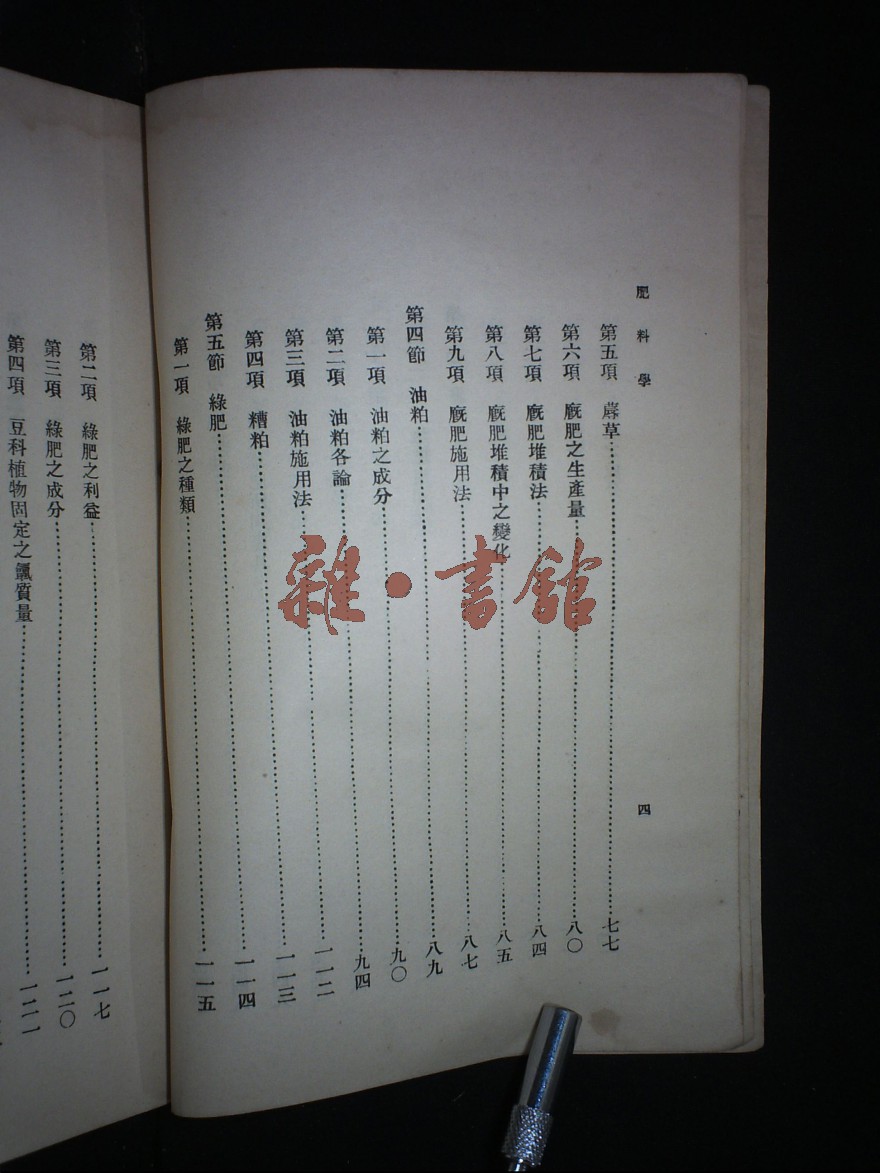 肥料學
四
第五項 蓐草……七七
第六項 廐肥之生產量……八〇
第七項 廐肥堆積法……八四
第八項 廐肥堆積中之變化……八五
第九項 廐肥施用法……八七
第四節 油粕……八九
第一項 油粕之成分……九〇
第二項 油粕各論……九四
第三項 油粕施用法……一一二
第四項 糟粕……一一三
第五節 綠肥……一一四
第一項 綠肥之種類……一一五
第二項 綠肥之利益……一一七
第三項 綠肥之成分……一二〇
第四項 豆科植物固定之氮質量……一二一
雜·書館